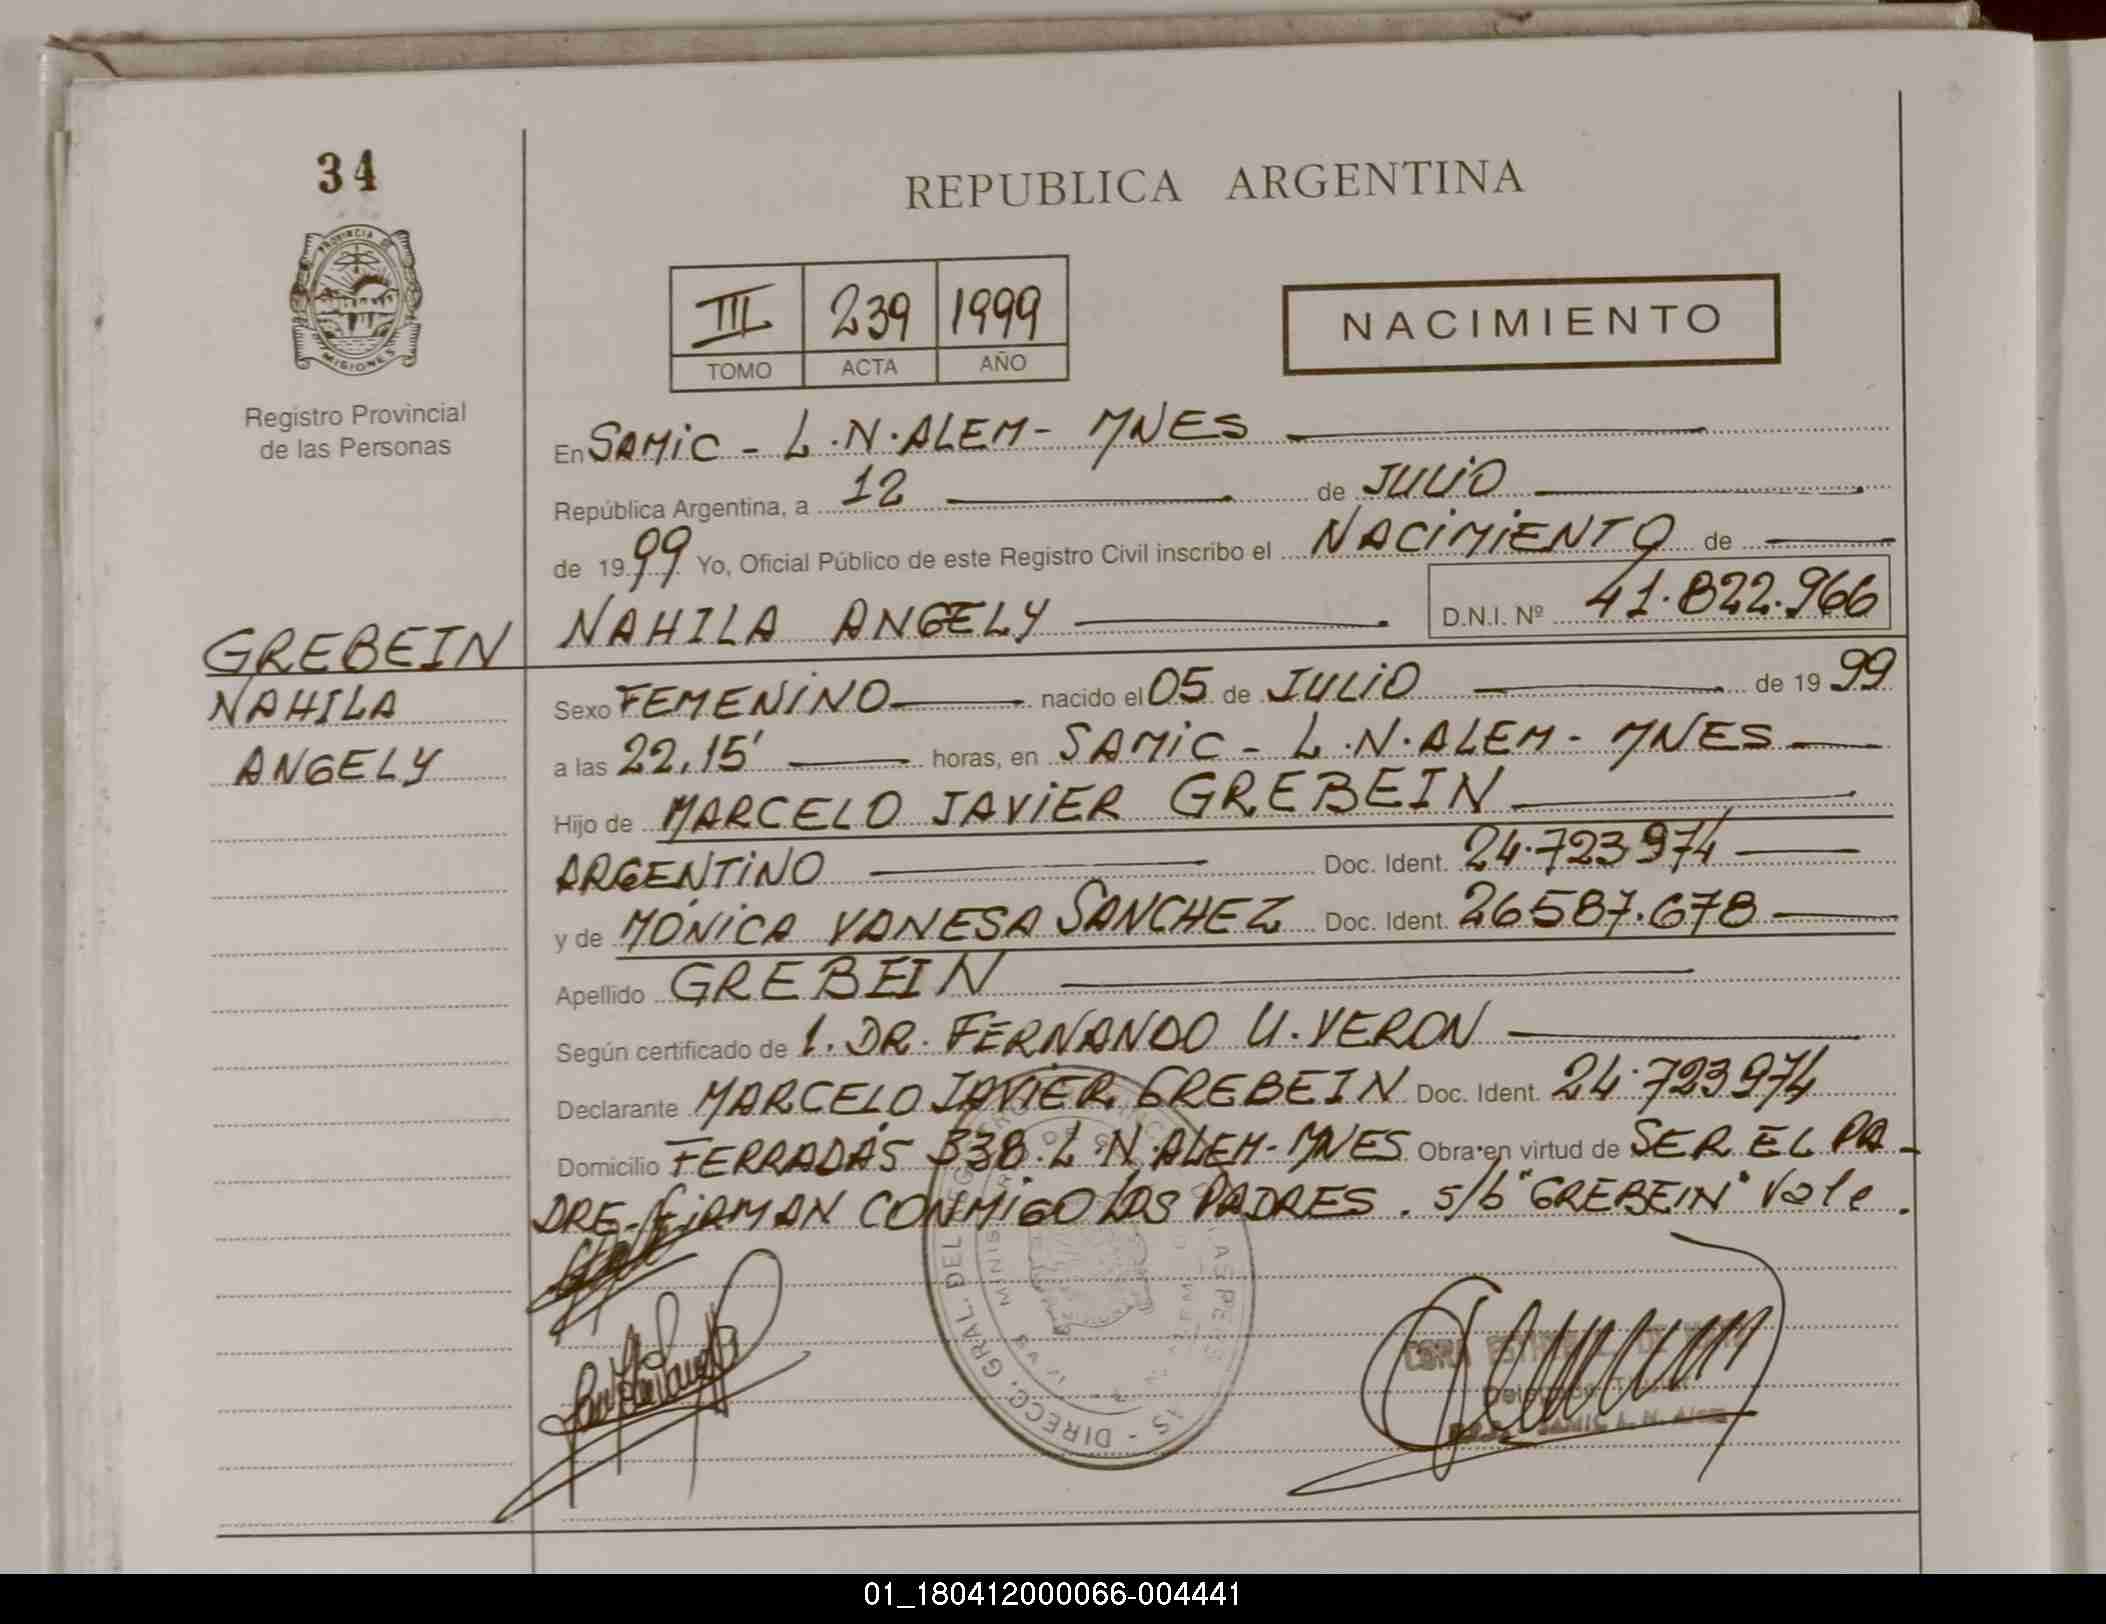 34
REPUBLICA ARGENTINA
PROVINCIA DE
MISIONES
Registro Provincial
de las Personas
III 239 1999
TOMO ACTA AÑO
NACIMIENTO
En SAMIC - L.N.ALEM - MNES
República Argentina, a 12 de JULIO
de 1999 Yo, Oficial Público de este Registro Civil inscribo el NACIMIENTO de
NAHILA ANGELY D.N.I. Nº 41.822.966
GREBEIN
NAHILA
ANGELY
Sexo FEMENINO nacido el 05 de JULIO de 1999
a las 22,15' horas, en SAMIC - L.N.ALEM - MNES
Hijo de MARCELO JAVIER GREBEIN
ARGENTINO Doc. Ident. 24.723974
y de MÓNICA VANESA SANCHEZ Doc. Ident. 26587.678
Apellido GREBEIN
Según certificado de 1. DR. FERNANDO U. VERON
Declarante MARCELO JAVIER GREBEIN Doc. Ident. 24.723974
Domicilio FERRADAS 338. L.N.ALEM-MNES Obra en virtud de SER EL PA-
DRE-FIRMAN CONMIGO LOS PADRES. s/b "GREBEIN" Vale.
DIRECC. GRAL. DEL
SAMIC L. N. Alem
01_180412000066-004441